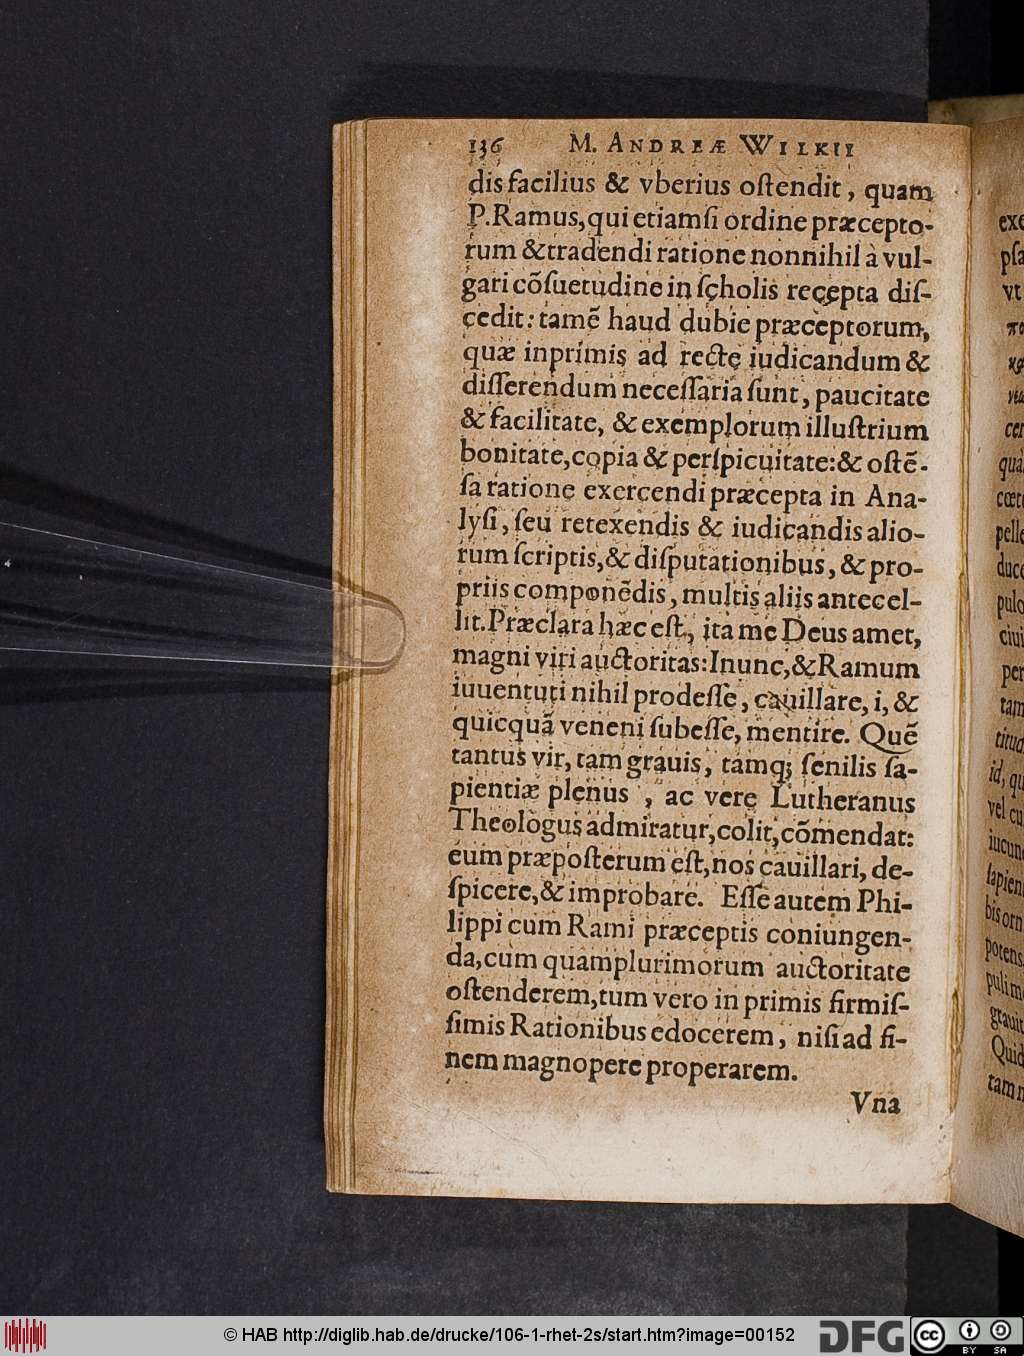 136 M. ANDREÆ WILKII
dis facilius & vberius oſtendit, quam
P. Ramus, qui etiamſi ordine præcepto-
rum & tradendi ratione nonnihil à vul-
gari cõſuetudine in ſcholis recepta diſ-
cedit: tamẽ haud dubie præceptorum,
quæ inprimis ad recte iudicandum &
diſſerendum neceſſaria ſunt, paucitate
& facilitate, & exemplorum illuſtrium
bonitate, copia & perſpicuitate: & oſtẽ-
ſa ratione exercendi præcepta in Ana-
lyſi, ſeu retexendis & iudicandis alio-
rum ſcriptis, & diſputationibus, & pro-
priis componẽdis, multis aliis antecel-
lit. Præclara hæc eſt, ita me Deus amet,
magni viri auctoritas: I nunc, & Ramum
iuuentuti nihil prodeſſe, cauillare, i, &
quicquã veneni ſubeſſe, mentire. Quẽ
tantus vir, tam grauis, tamq; ſenilis ſa-
pientiæ plenus, ac vere Lutheranus
Theologus admiratur, colit, cõmendat:
eum præpoſterum eſt, nos cauillari, de-
ſpicere, & improbare. Eſſe autem Phi-
lippi cum Rami præceptis coniungen-
da, cùm quamplurimorum auctoritate
oſtenderem, tum vero in primis firmiſ-
ſimis Rationibus edocerem, niſi ad fi-
nem magnopere properarem.
Vna
exe
pſa
vt
cer
quà
cœte
pelle
duce
pulo
ciui
per
tam
titud
id, qu
vel cu
iucun
ſapien
bis orn
potens
puli m
grauit
Quid
tam n
© HAB http://diglib.hab.de/drucke/106-1-rhet-2s/start.htm?image=00152
DFG
cc
BY SA